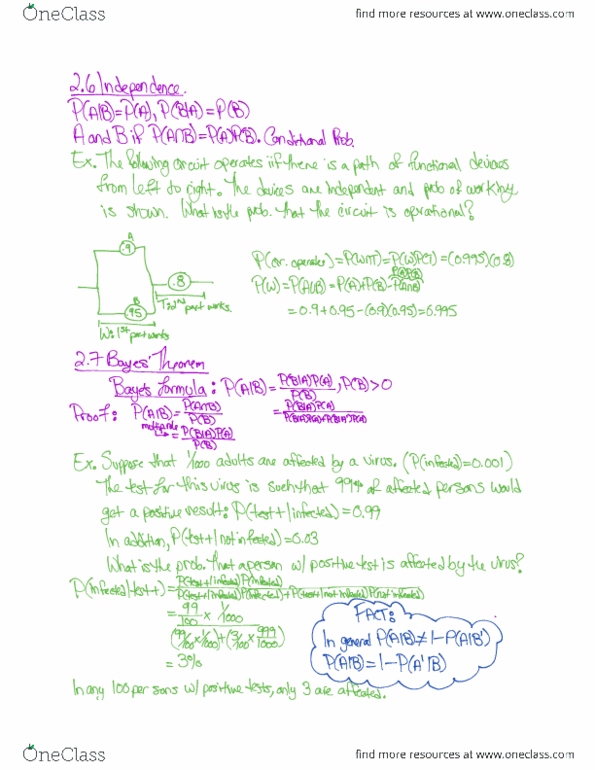 OneClass
find more resources at www.oneclass.com
2.6 Independence.
P(A|B)=P(A), P(B|A)=P(B)
A and B if P(A∩B)=P(A)P(B). Conditional Prob.
Ex. The following circuit operates iif there is a path of functional devices
from left to right. The devices are independent and prob of working
is shown. What is the prob. that the circuit is oprational?
A
.9
.8
B
.95
T: 2nd part works.
W: 1st part works
P(cir. operates)=P(W∩T)=P(W)P(T)=(0.995)(0.8)
P(W)=P(A∪B)=P(A)+P(B)-P(A∩B)
P(A)P(B)
=0.9+0.95-(0.9)(0.95)=0.995
2.7 Bayes' Theorem
Bayes formula: P(A|B)=P(B|A)P(A)/P(B), P(B)>0
Proof: P(A|B)=P(A∩B)/P(B)
=P(B|A)P(A)/P(B)
Ex. Suppose that 1/1000 adults are affected by a virus. (P(infected)=0.001)
The test for this virus is such that 99% of affected persons would
get a positive result: P(test+|infected)=0.99
In addition, P(test+|not infected)=0.03
What is the prob. That a person w/ positive test is affected by the virus?
P(infected|test+)=P(test+|infected)P(infected)/P(test+|infected)P(infected)+P(test+|not infected)P(not infected)
=99/100×1/1000/(99/100×1/1000)+(3/100×999/1000)
=3%
FACT:
In general P(A|B)≠1-P(A|B')
P(A|B)=1-P(A'|B)
In any 100 persons w/ positive tests, only 3 are affected.
OneClass
find more resources at www.oneclass.com